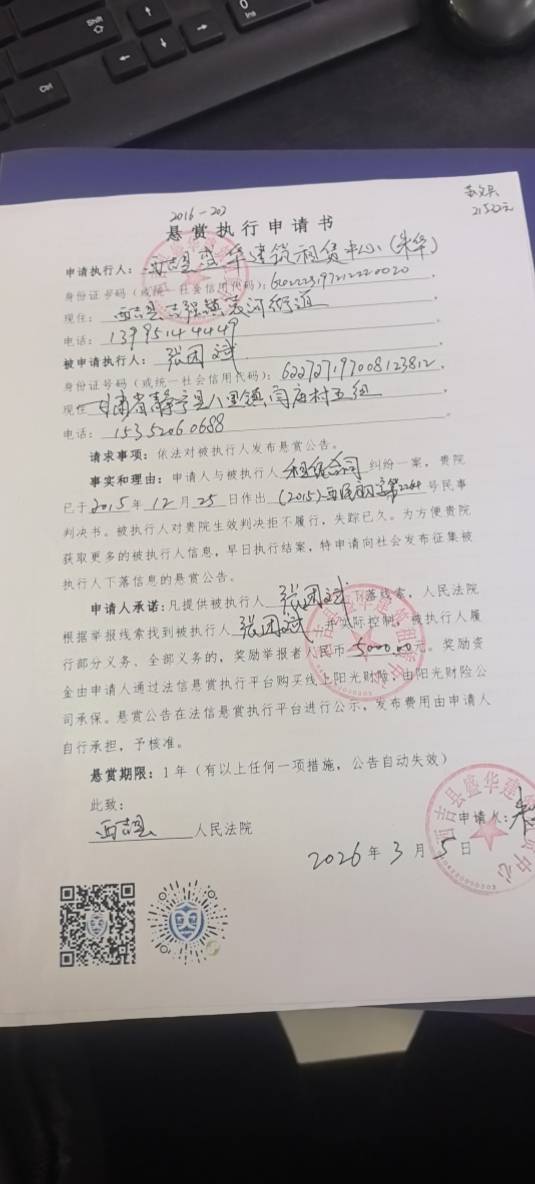 Shift
Ctrl
0
Ins
2016-202
21522元
悬赏执行申请书
申请执行人：西吉县盛华建筑租赁中心（朱华）
身份证号码（或统一社会信用代码）：
现住：西吉县吉强镇 河街道
电话：13995144449
被申请执行人：张团斌
身份证号码（或统一社会信用代码）：622727197008123812.
现住 甘肃省静宁县八里镇阎庙村五组
电话：15352060688
请求事项：依法对被执行人发布悬赏公告。
事实和理由：申请人与被执行人 租赁合同 纠纷一案，贵院
已于2015年12月25日作出 (2015)西民初字第2264号民事
判决书。被执行人对贵院生效判决拒不履行，失踪已久。为方便贵院
获取更多的被执行人信息，早日执行结案，特申请向社会发布征集被
执行人下落信息的悬赏公告。
申请人承诺：凡提供被执行人 张团斌 下落线索，人民法院
根据举报线索找到被执行人 张团斌 并实际控制，被执行人履
行部分义务、全部义务的，奖励举报者人民币 5000.00元。奖励资
金由申请人通过法信悬赏执行平台购买线上阳光财险，由阳光财险公
司承保。悬赏公告在法信悬赏执行平台进行公示，发布费用由申请人
自行承担，予核准。
悬赏期限：1年（有以上任何一项措施，公告自动失效）
此致：
西吉县 人民法院
申请人：朱
2026年3月5日
西吉县盛华建